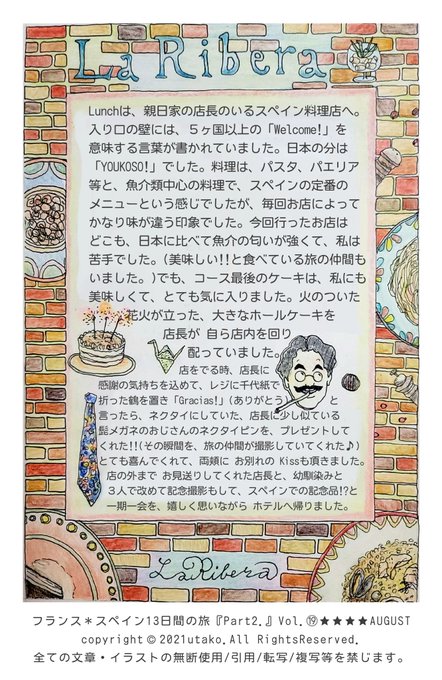 La Ribera
Lunchは、親日家の店長のいるスペイン料理店へ。
入り口の壁には、５ヶ国以上の「Welcome!」を
意味する言葉が書かれていました。日本の分は
「YOUKOSO!」でした。料理は、パスタ、パエリア
等と、魚介類中心の料理で、スペインの定番の
メニューという感じでしたが、毎回お店によって
かなり味が違う印象でした。今回行ったお店は
どこも、日本に比べて魚介の匂いが強くて、私は
苦手でした。(美味しい!!と食べている旅の仲間も
いました。)でも、コース最後のケーキは、私にも
美味しくて、とても気に入りました。火のついた
花火が立った、大きなホールケーキを
店長が 自ら店内を回り
配っていました。
店をでる時、店長に
感謝の気持ちを込めて、レジに千代紙で
折った鶴を置き「Gracias!」(ありがとう)と
言ったら、ネクタイにしていた、店長に少し似ている
髭メガネのおじさんのネクタイピンを、プレゼントして
くれた!!(その瞬間を、旅の仲間が撮影していてくれた♪)
とても喜んでくれて、両頬に お別れの Kissも頂きました。
店の外まで お見送りしてくれた店長と、幼馴染みと
３人で改めて記念撮影もして、スペインでの記念品!?と
一期一会を、嬉しく思いながら ホテルへ帰りました。
La Ribera
フランス＊スペイン13日間の旅『Part2.』Vol.⑲★★★★AUGUST
copyright©2021utako.All RightsReserved.
全ての文章・イラストの無断使用/引用/転写/複写等を禁じます。